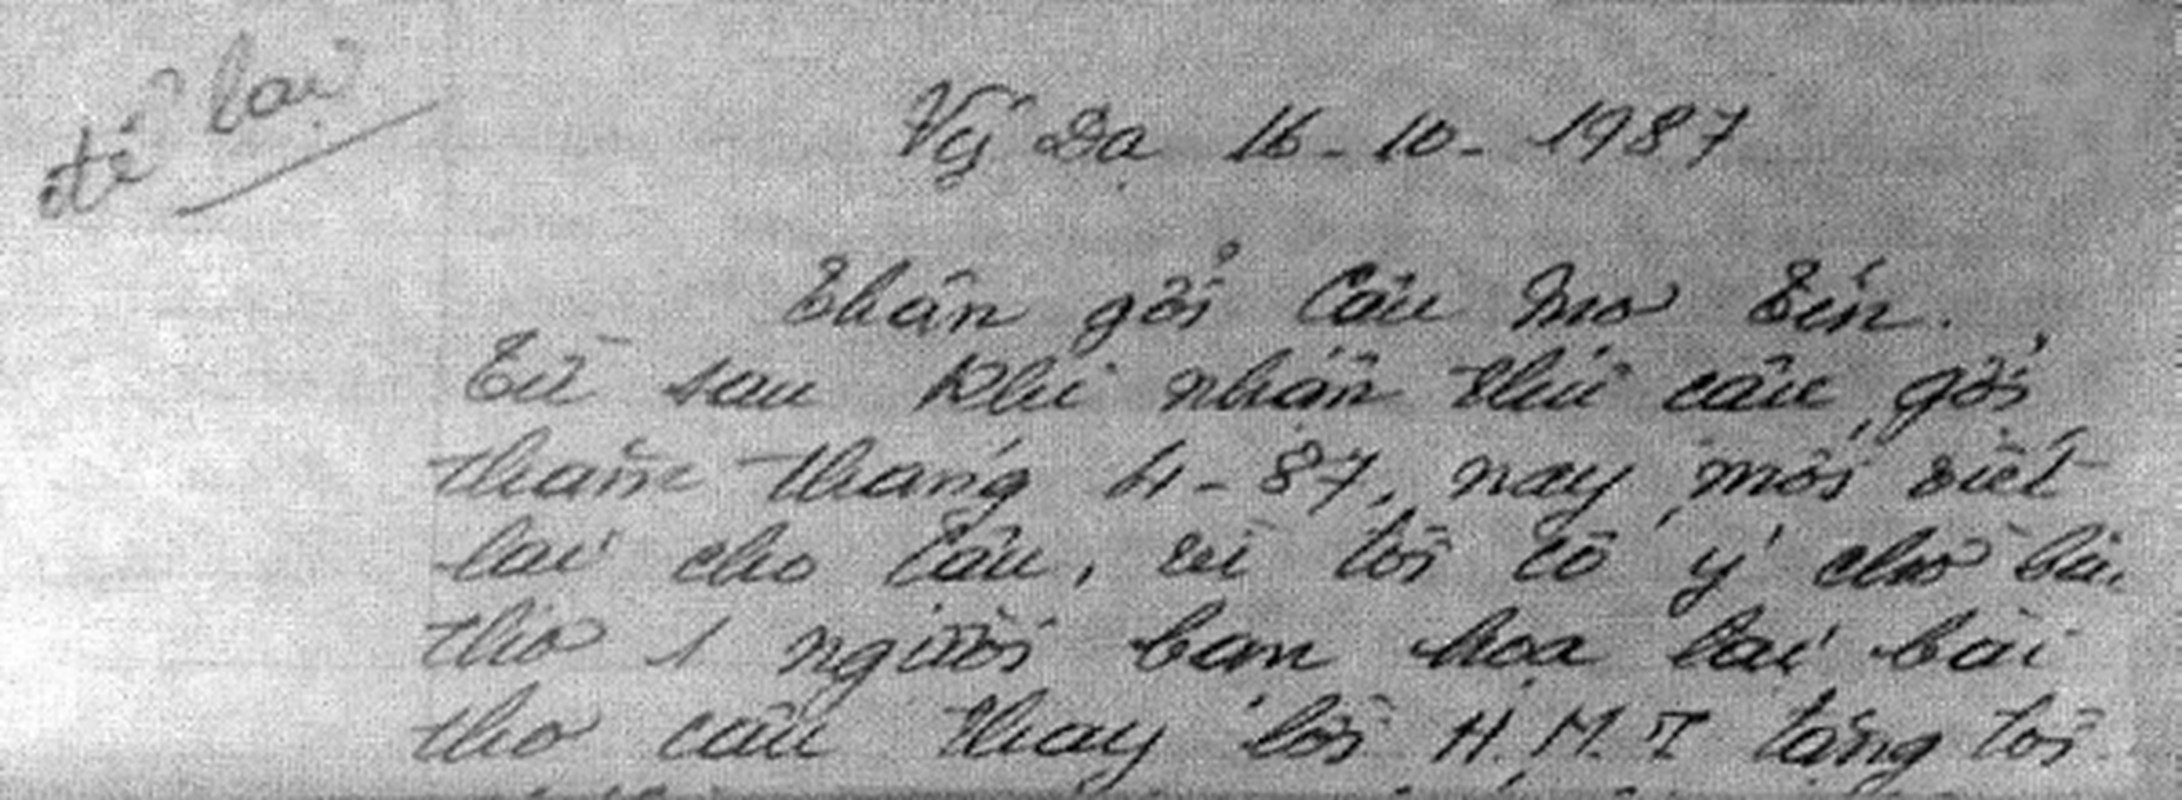 để lại
Vỹ Dạ 16-10-1987
Thân gởi Cậu Mợ Tín.
Từ sau khi nhận thư cậu gởi
thăm tháng 4-87, nay mới viết
lại cho Cậu, vì tôi có ý chờ bài
thơ 1 người bạn họa lại bài
thơ cậu thay lời H.M.T tặng tôi